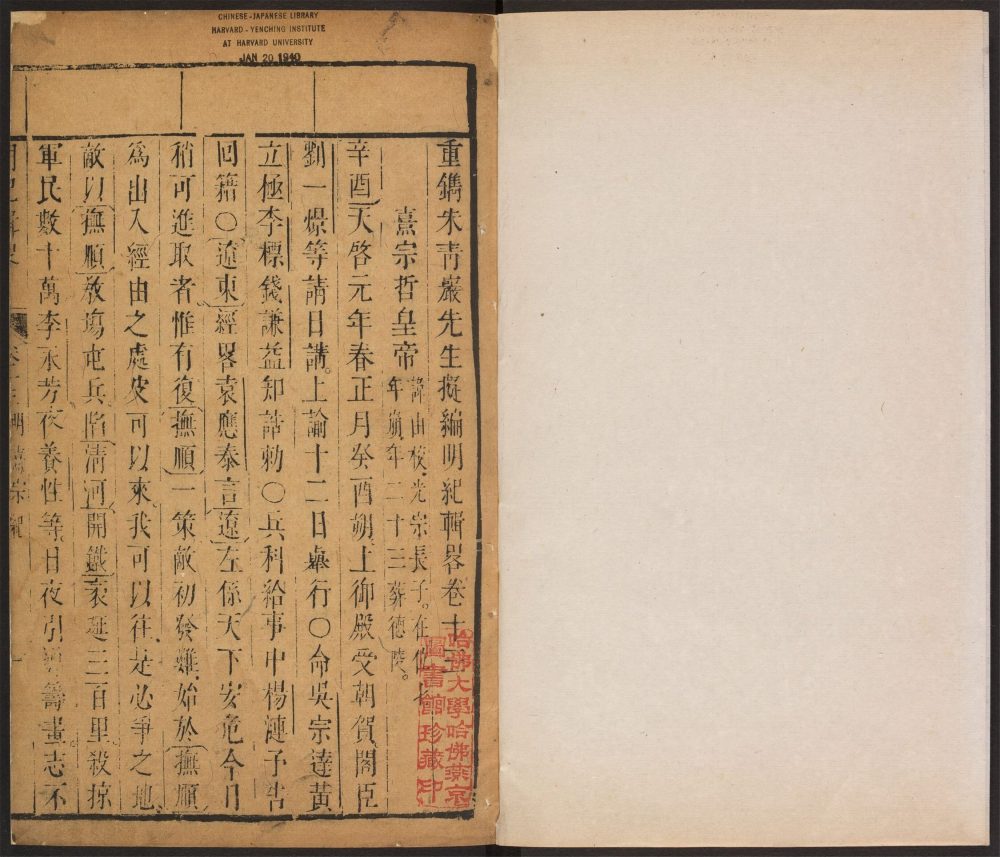 CHINESE-JAPANESE LIBRARY
HARVARD-YENCHING INSTITUTE
AT HARVARD UNIVERSITY
JAN 20 1940
重鐫朱青巖先生擬編明紀輯畧卷十
熹宗哲皇帝 諱由校光宗長子。在位七年崩年二十三葬德陵。
辛酉天啓元年春正月癸酉朔上御殿受朝賀閣臣
劉一燝等請日講。上諭十二日舉行○命吳宗達黄
立極李標錢謙益知誥勅○兵科給事中楊漣予告
回籍○遼東經畧袁應泰言遼左係天下安危今日
稍可進取者惟有復撫順一策敵初發難始於撫順
爲出入經由之處彼可以來我可以往是必爭之地
敵以撫順教塲屯兵陷淸河開鐵袤延三百里殺掠
軍民數十萬李永芳佟養性等日夜引 籌畫志不
哈佛大學哈佛燕京
圖書館珍藏印